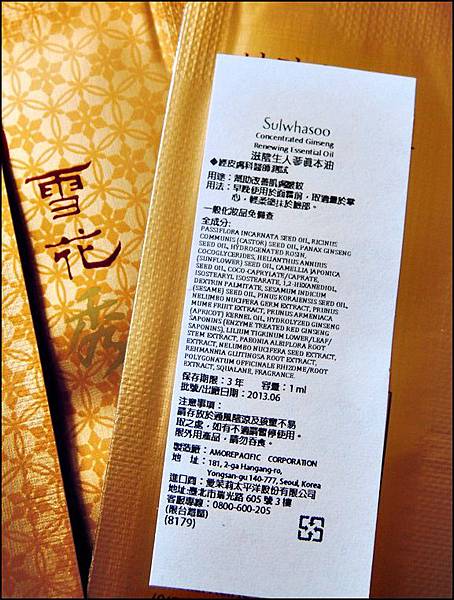 雪花秀
Sulwhasoo
Concentrated Ginseng
Renewing Essential Oil
滋陰生人蔘真本油
◆經皮膚科醫師測試
用途：幫助改善肌膚皺紋
用法：早晚使用於面霜前，取適量於掌
心，輕柔塗抹於臉部。
一般化妝品免備查
全成分：
PASSIFLORA INCARNATA SEED OIL, RICINUS
COMMUNIS (CASTOR) SEED OIL, PANAX GINSENG
SEED OIL, HYDROGENATED ROSIN,
COCOGLYCERIDES, HELIANTHUS ANNUUS
(SUNFLOWER) SEED OIL, CAMELLIA JAPONICA
SEED OIL, COCO-CAPRYLATE/CAPRATE,
ISOSTEARYL ISOSTEARATE, 1,2-HEXANEDIOL,
DEXTRIN PALMITATE, SESAMUM INDICUM
(SESAME) SEED OIL, PINUS KORAIENSIS SEED OIL,
NELUMBO NUCIFERA GERM EXTRACT, PRUNUS
MUME FRUIT EXTRACT, PRUNUS ARMENIACA
(APRICOT) KERNEL OIL, HYDROLYZED GINSENG
SAPONINS (ENZYME TREATED RED GINSENG
SAPONINS), LILIUM TIGRINUM LOWER/LEAF/
STEM EXTRACT, PAEONIA ALBIFLORA ROOT
EXTRACT, NELUMBO NUCIFERA SEED EXTRACT,
REHMANNIA GLUTINOSA ROOT EXTRACT,
POLYGONATUM OFFICINALE RHIZOME/ROOT
EXTRACT, SQUALANE, FRAGRANCE
保存期限：3 年 容量：1 ml
批號/出廠日期：2013.06
注意事項：
請存放於通風陰涼及孩童不易
取之處。如有不適請暫停使用。
限外用產品，請勿吞食。
製造廠：AMOREPACIFIC CORPORATION
地 址：181, 2-ga Hangang-ro,
Yongsan-gu 140-777, Seoul, Korea
進口商：愛茉莉太平洋股份有限公司
地址：臺北市瑞光路 605 號 3 樓
客服專線：0800-600-205
(限台灣區)
(8179)